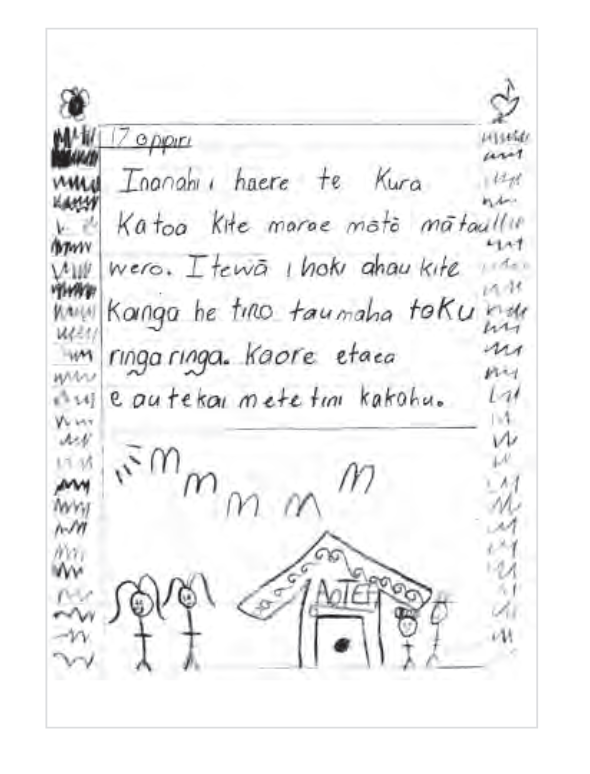 17 oppiri
Inanahi i haere te Kura
Katoa Kite marae mōtō mātau
wero. I tewā i hoki ahau kite
Kainga he tino taumaha toKu
ringaringa. Kaore etaea
e au te kai me te tini kakahu.
AOTEA